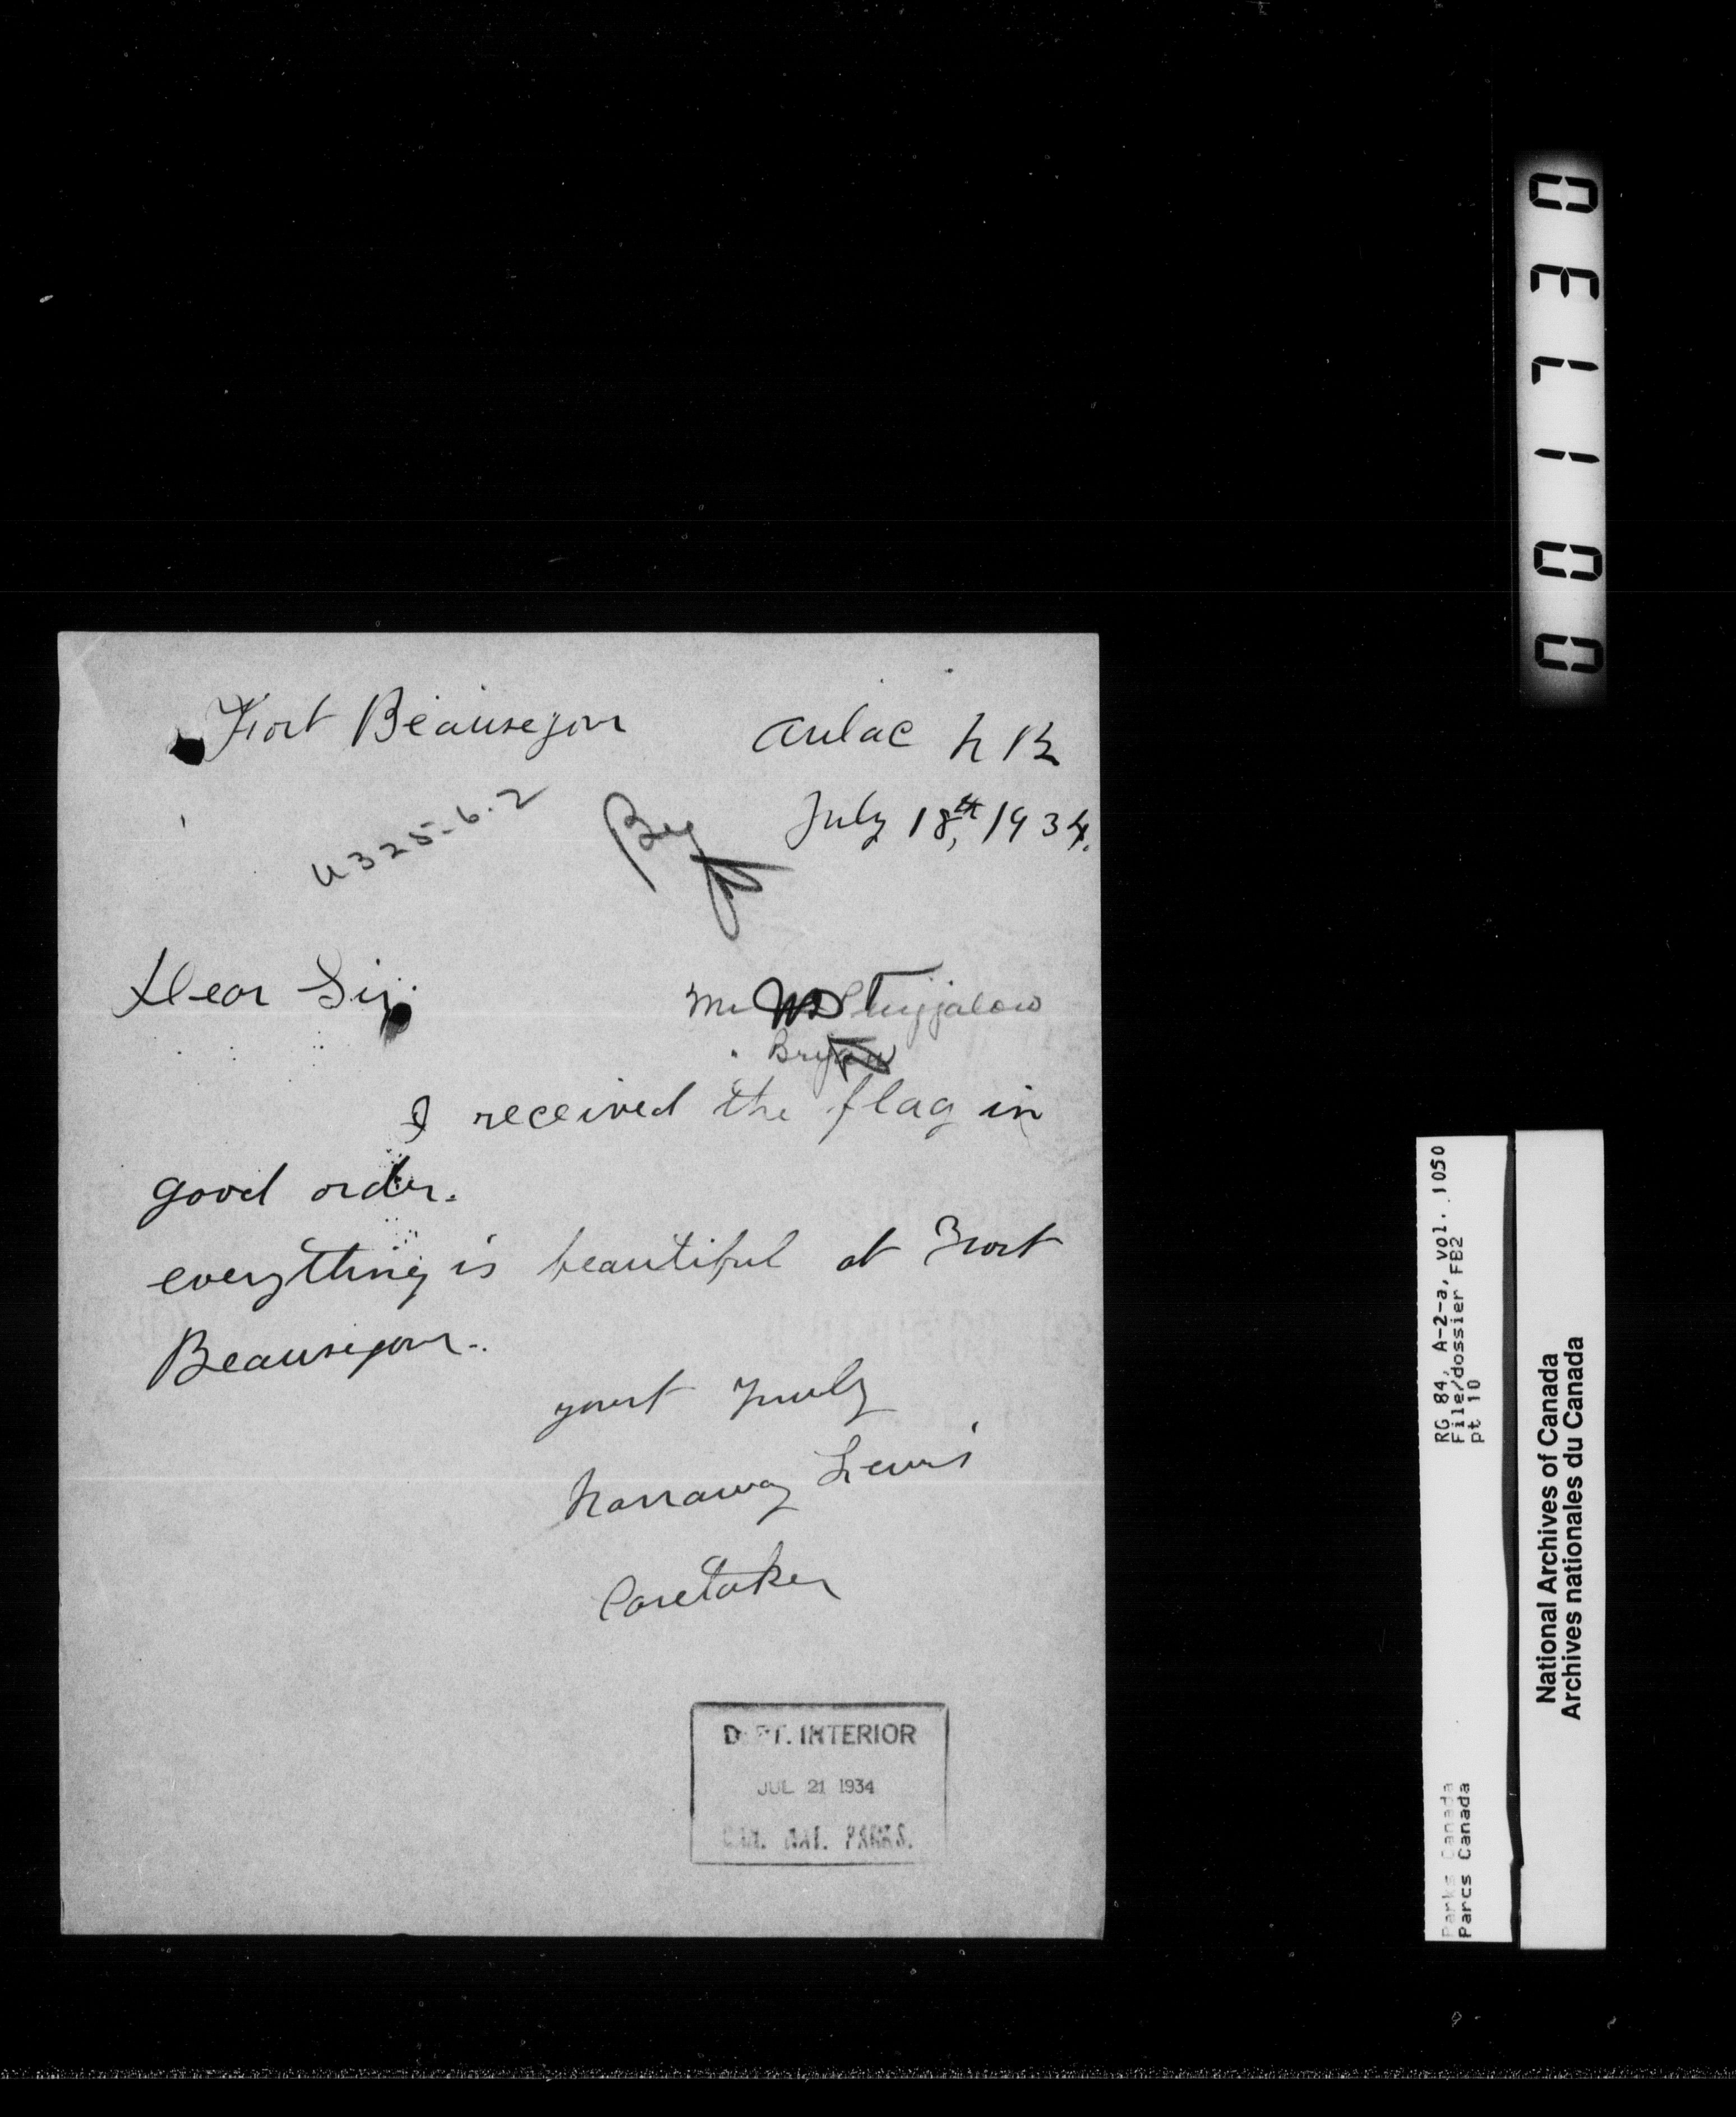 Fort Beausejour Aulac N B
July 18th, 1934.
U325-6.2
Dear Sir.
Mr
Bryan
I received the flag in
good order.
everything is beautiful at Fort
Beausejour..
yourt Truly
Narraway Lewis
Caretaker
DEPT. INTERIOR
JUL 21 1934
CAN. NAT. PARKS.
001730
RG 84, A-2-a, vol. 1050
File/dossier FB2
pt 10
Parks Canada
Parcs Canada
National Archives of Canada
Archives nationales du Canada